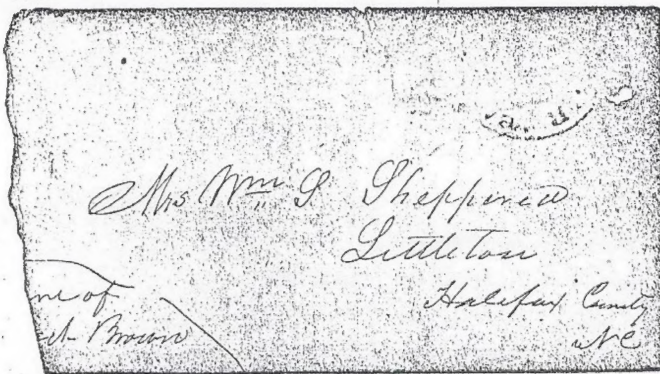 Mrs Wm S Shepperd
Littleton
Halifax County
NC
me of
Brown